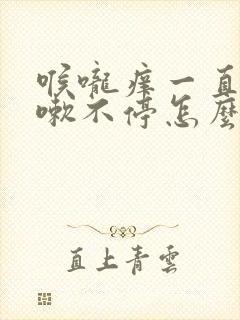 喉嚨癢一直
嗽不停怎麼
直上青雲